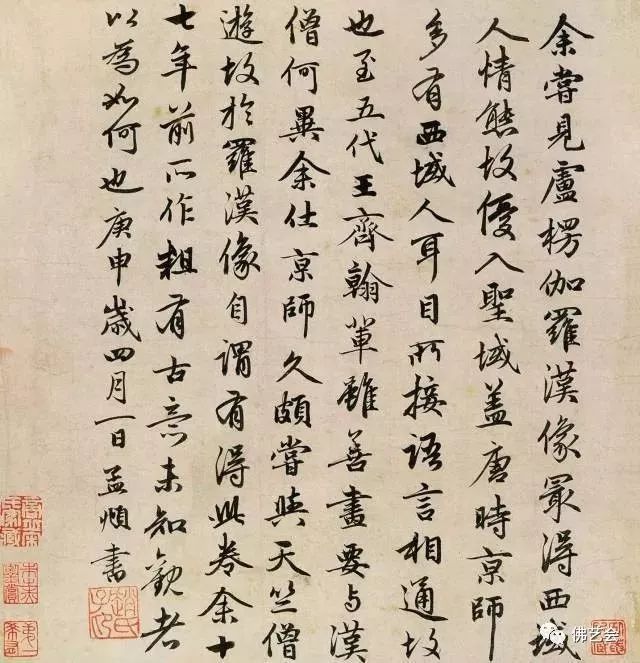 余嘗見盧楞伽羅漢像㝡得西域
人情態故優入聖域蓋唐時京師
多有西域人耳目所接語言相通故
也至五代王齊翰輩雖善畫要與漢
僧何異余仕京師久頗嘗與天竺僧
遊故於羅漢像自謂有得此卷余十
七年前所作粗有古意未知觀者
以為如何也庚申歲四月一日孟頫書
趙氏子昂
佛艺会